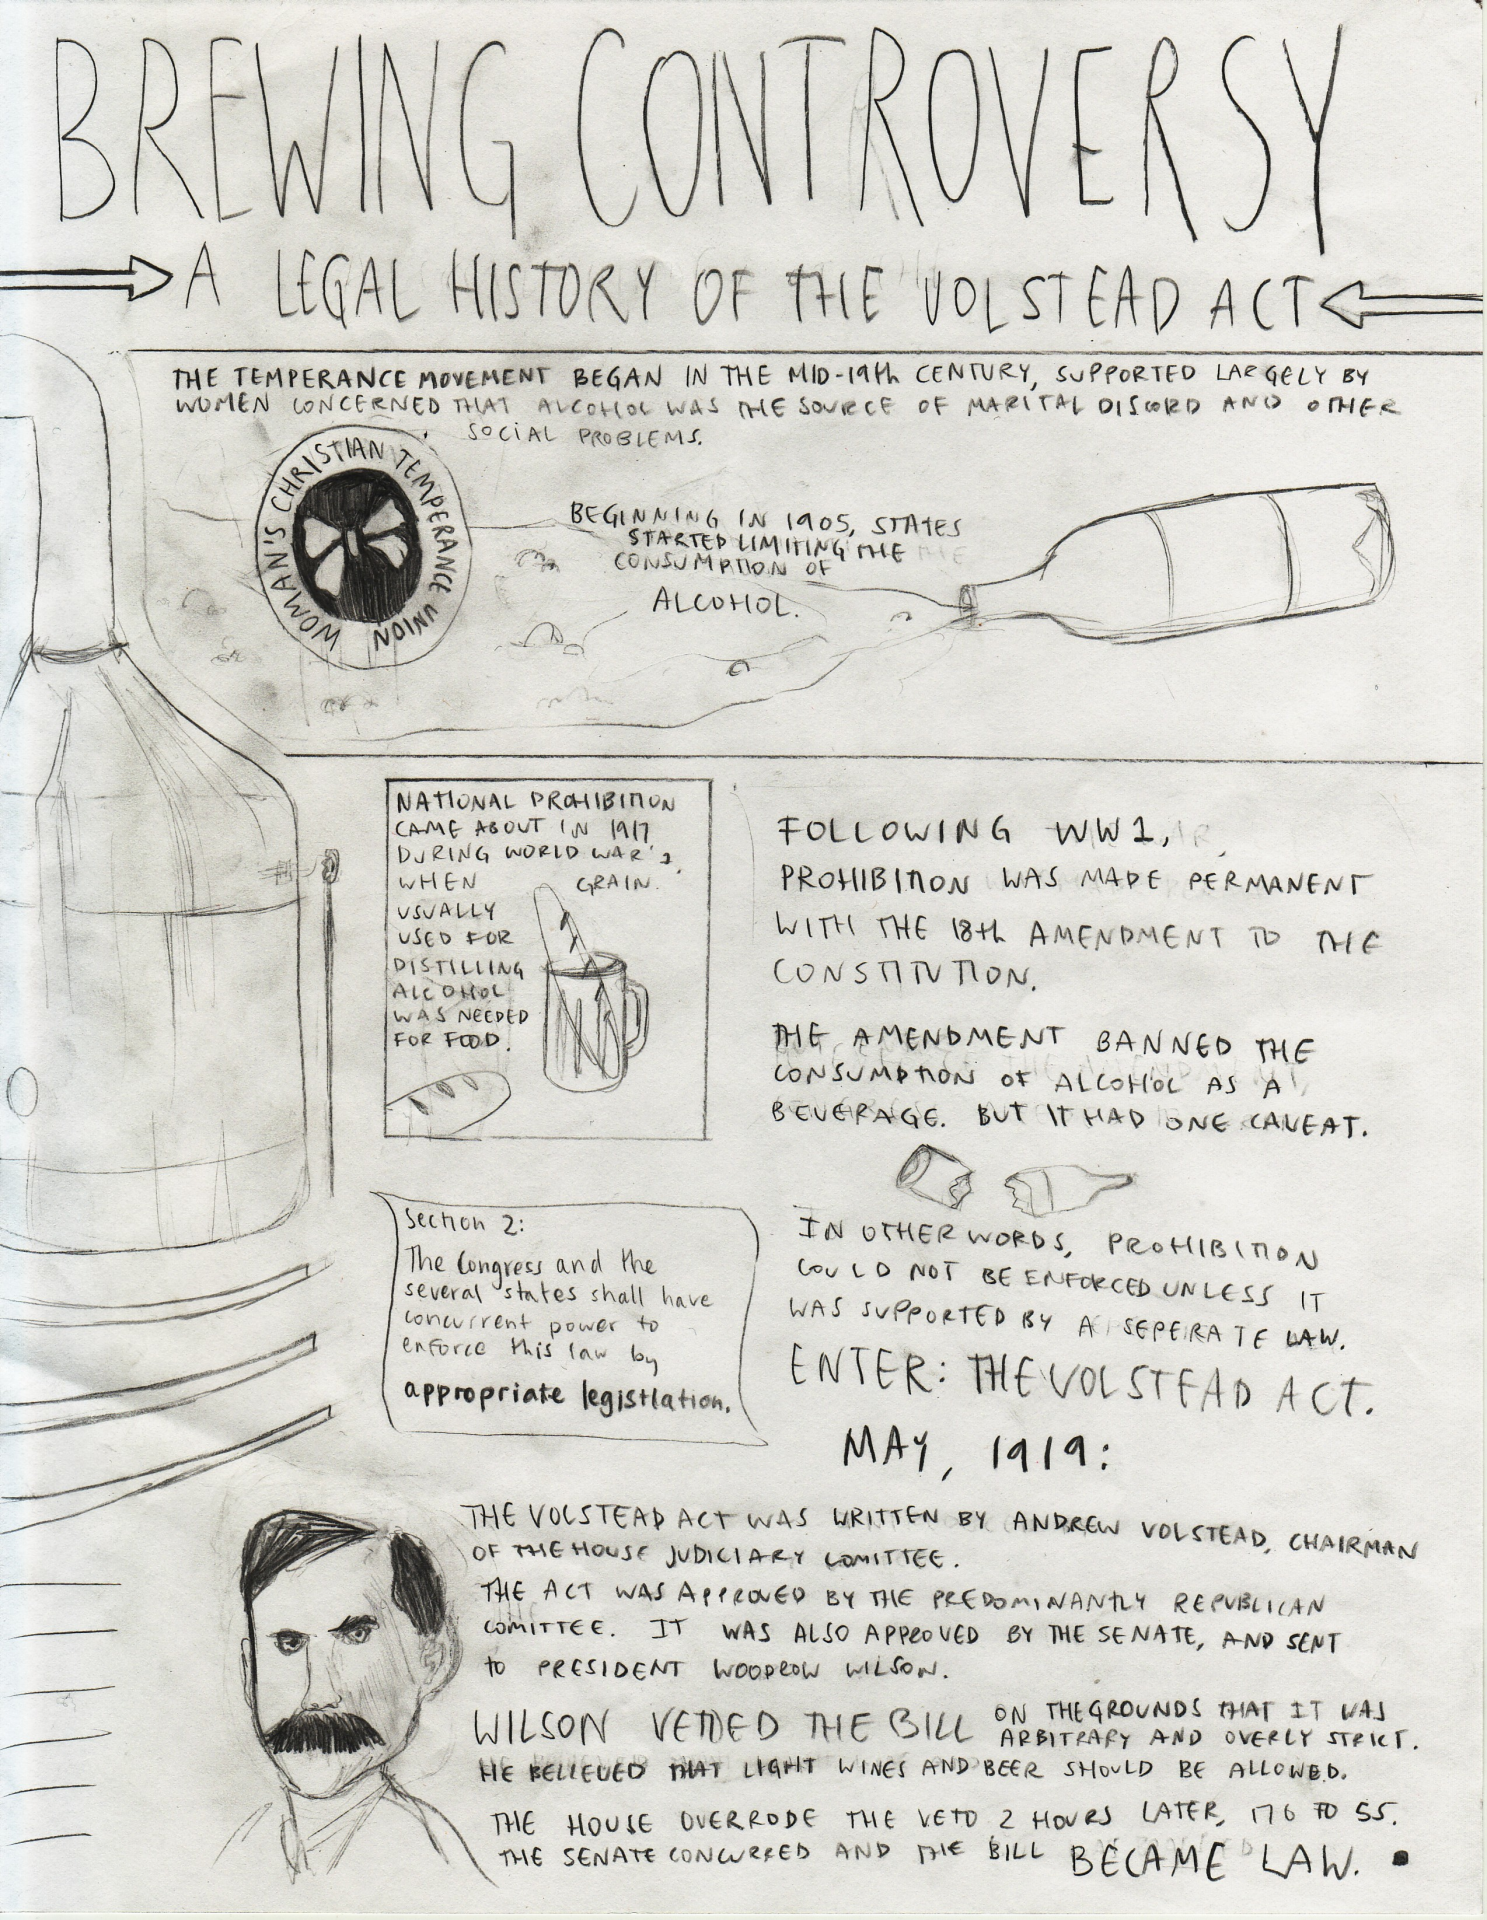 BREWING CONTROVERSY
A LEGAL HISTORY OF THE VOLSTEAD ACT
THE TEMPERANCE MOVEMENT BEGAN IN THE MID-19th CENTURY, SUPPORTED LARGELY BY
WOMEN CONCERNED THAT ALCOHOL WAS THE SOURCE OF MARITAL DISCORD AND OTHER
SOCIAL PROBLEMS.
WOMAN'S CHRISTIAN TEMPERANCE UNION
BEGINNING IN 1905, STATES
STARTED LIMITING THE
CONSUMPTION OF
ALCOHOL.
NATIONAL PROHIBITION
CAME ABOUT IN 1917
DURING WORLD WAR 1,
WHEN GRAIN
USUALLY
USED FOR
DISTILLING
ALCOHOL
WAS NEEDED
FOR FOOD.
FOLLOWING WW1,
PROHIBITION WAS MADE PERMANENT
WITH THE 18th AMENDMENT TO THE
CONSTITUTION.
THE AMENDMENT BANNED THE
CONSUMPTION OF ALCOHOL AS A
BEVERAGE. BUT IT HAD ONE CAVEAT.
Section 2:
The Congress and the
several states shall have
concurrent power to
enforce this law by
appropriate legistlation.
IN OTHER WORDS, PROHIBITION
COULD NOT BE ENFORCED UNLESS IT
WAS SUPPORTED BY A SEPERATE LAW.
ENTER: THE VOLSTEAD ACT.
MAY, 1919:
THE VOLSTEAD ACT WAS WRITTEN BY ANDREW VOLSTEAD, CHAIRMAN
OF THE HOUSE JUDICIARY COMITTEE.
THE ACT WAS APPROVED BY THE PREDOMINANTLY REPUBLICAN
COMITTEE. IT WAS ALSO APPROVED BY THE SENATE, AND SENT
to PRESIDENT WOODROW WILSON.
WILSON VETOED THE BILL ON THE GROUNDS THAT IT WAS
ARBITRARY AND OVERLY STRICT.
HE BELIEVED THAT LIGHT WINES AND BEER SHOULD BE ALLOWED.
THE HOUSE OVERRODE THE VETO 2 HOURS LATER, 176 TO 55.
THE SENATE CONCURRED AND THE BILL BECAME LAW.